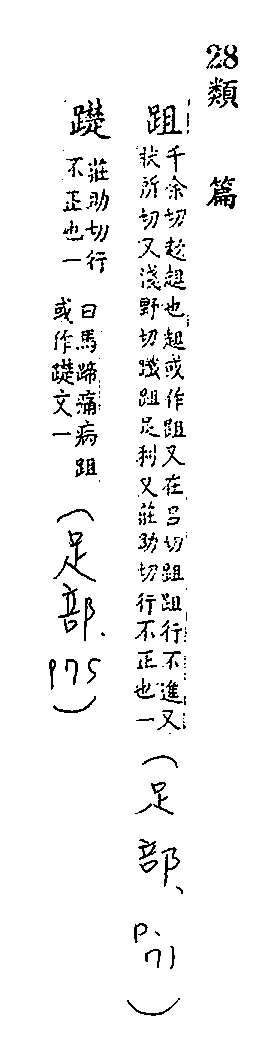 28類篇
跙千余切趑趄也趄或作跙又在呂切跙跙行不進又
狀所切又淺野切𨇤跙足利又莊助切行不正也一(足部、p.71)
䠂莊助切行
不正也一
曰馬蹄痛病跙
或作䠂文一(足部、p75)